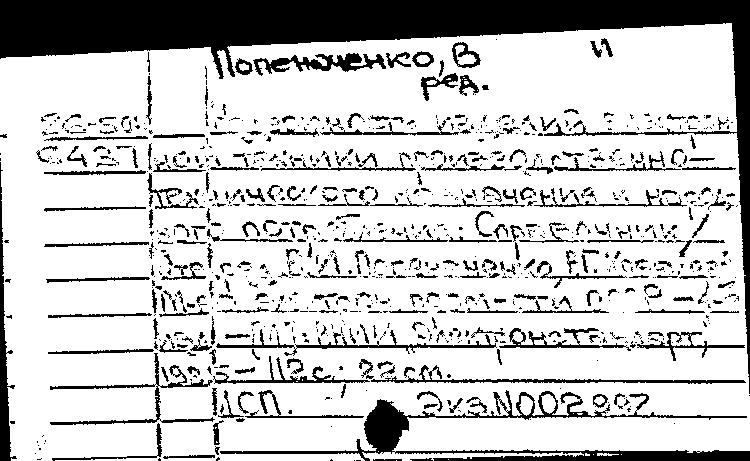 Попеноченко, В И
ред.
86-50
С437 Надежность изделий электрон
ной техники производственно-
технического назначения и народ
ного потребления: Справочник /
Отв. ред. В.И. Попеноченко,
М-во электрон. пром-сти СССР. - 2-е
изд. - ВНИИ "Электронстандарт",
1985 - 112 с.; 22 см.
ДСП. Экз. N002887